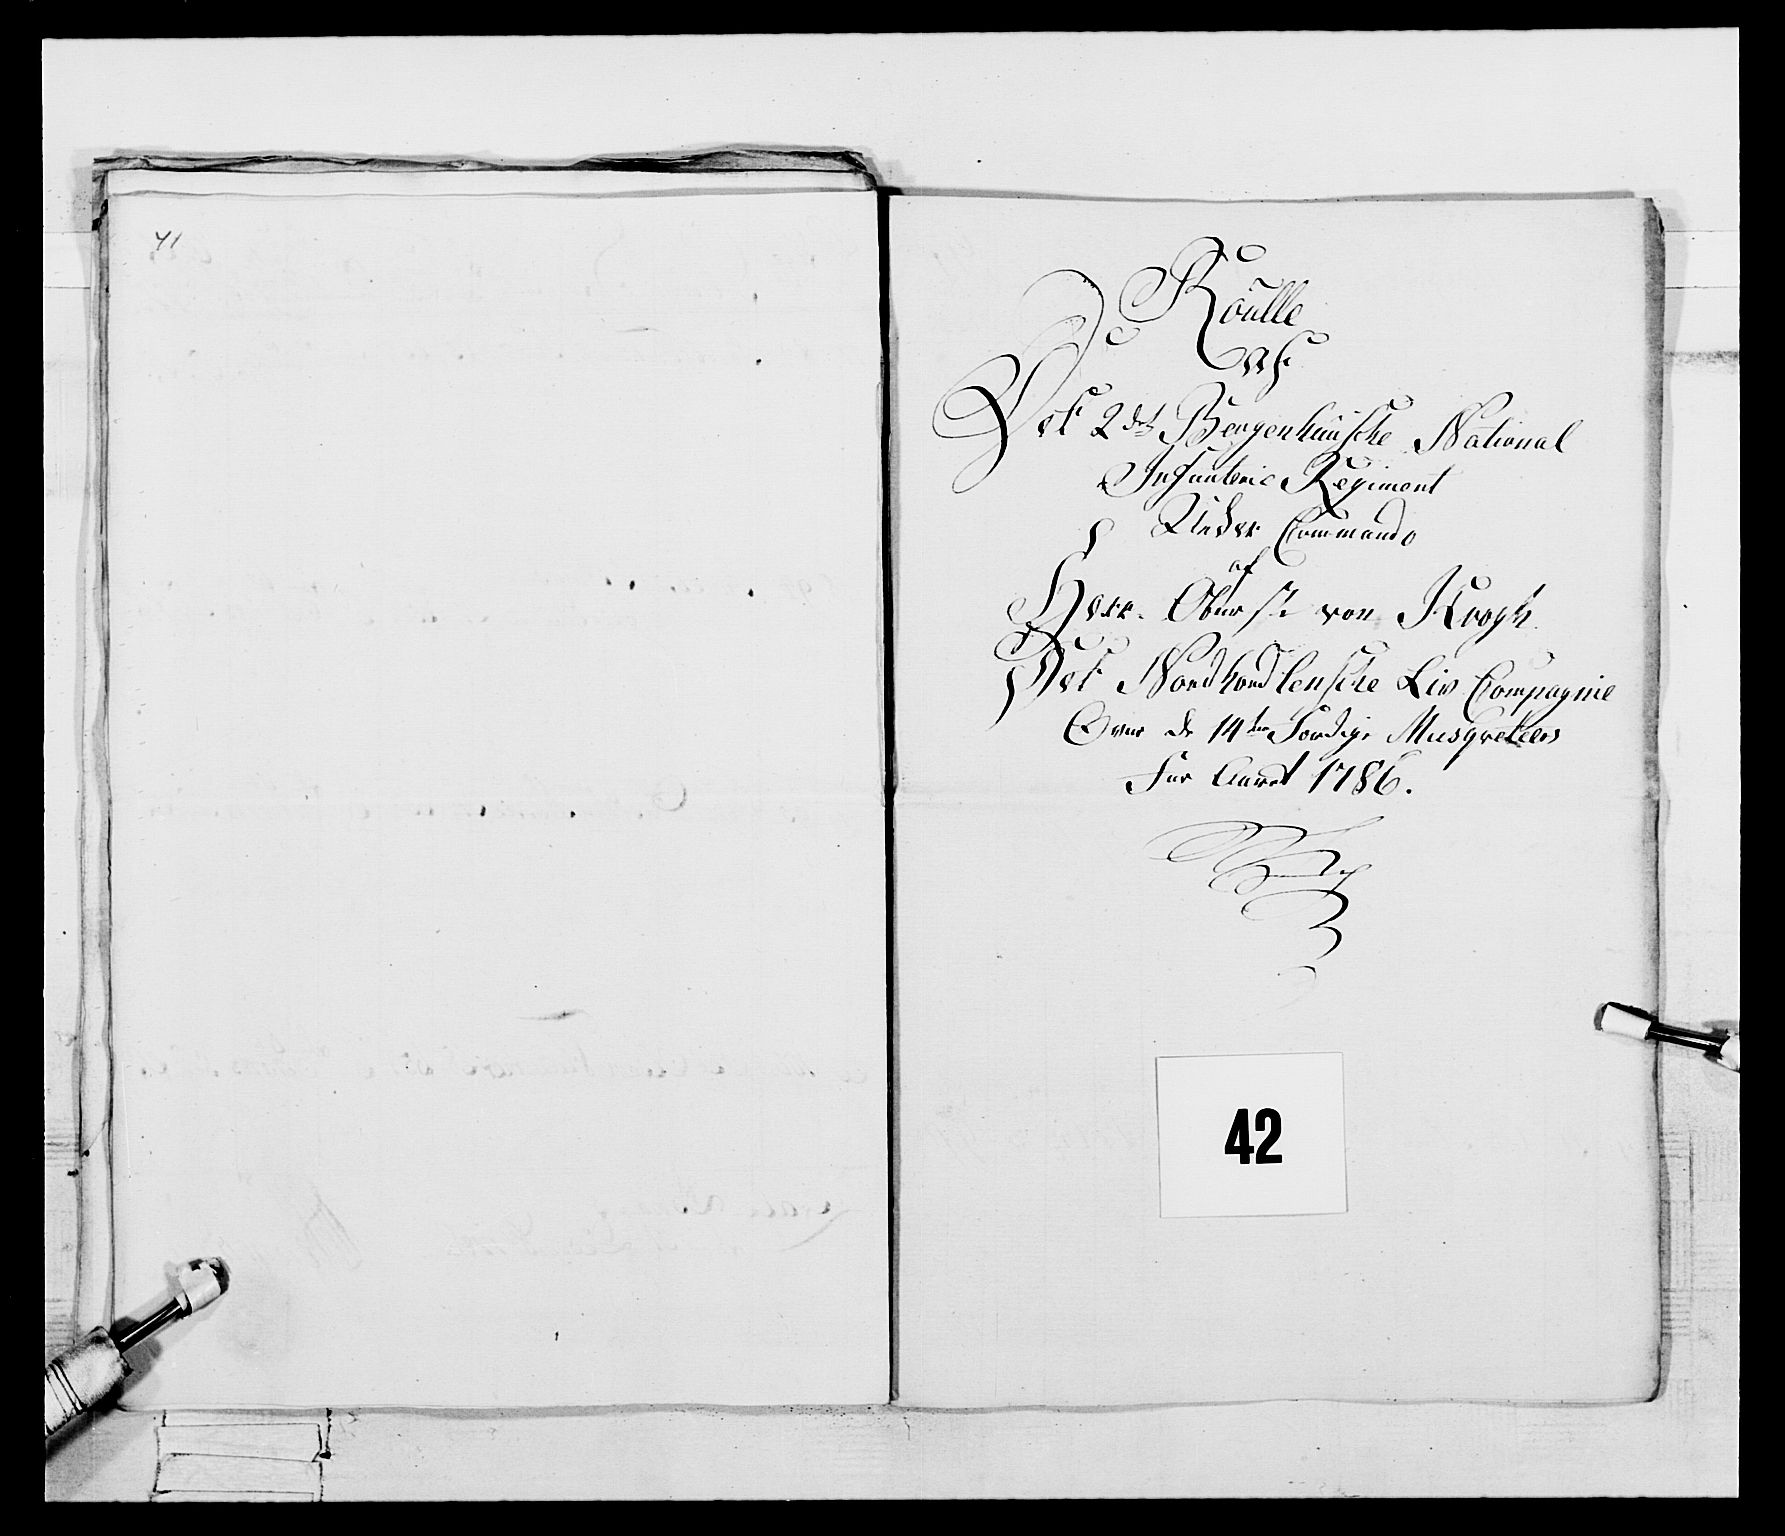 41
Roulle
Ved
Det 2det Bergenhuusche National
Infanterie Regiment
Under Commando
af
Herr Oberste von Krogh
Det Nordhordlensche Liv Compagnie
Over de 14ten Færdige Musqveteers
For Aaret 1786.
42